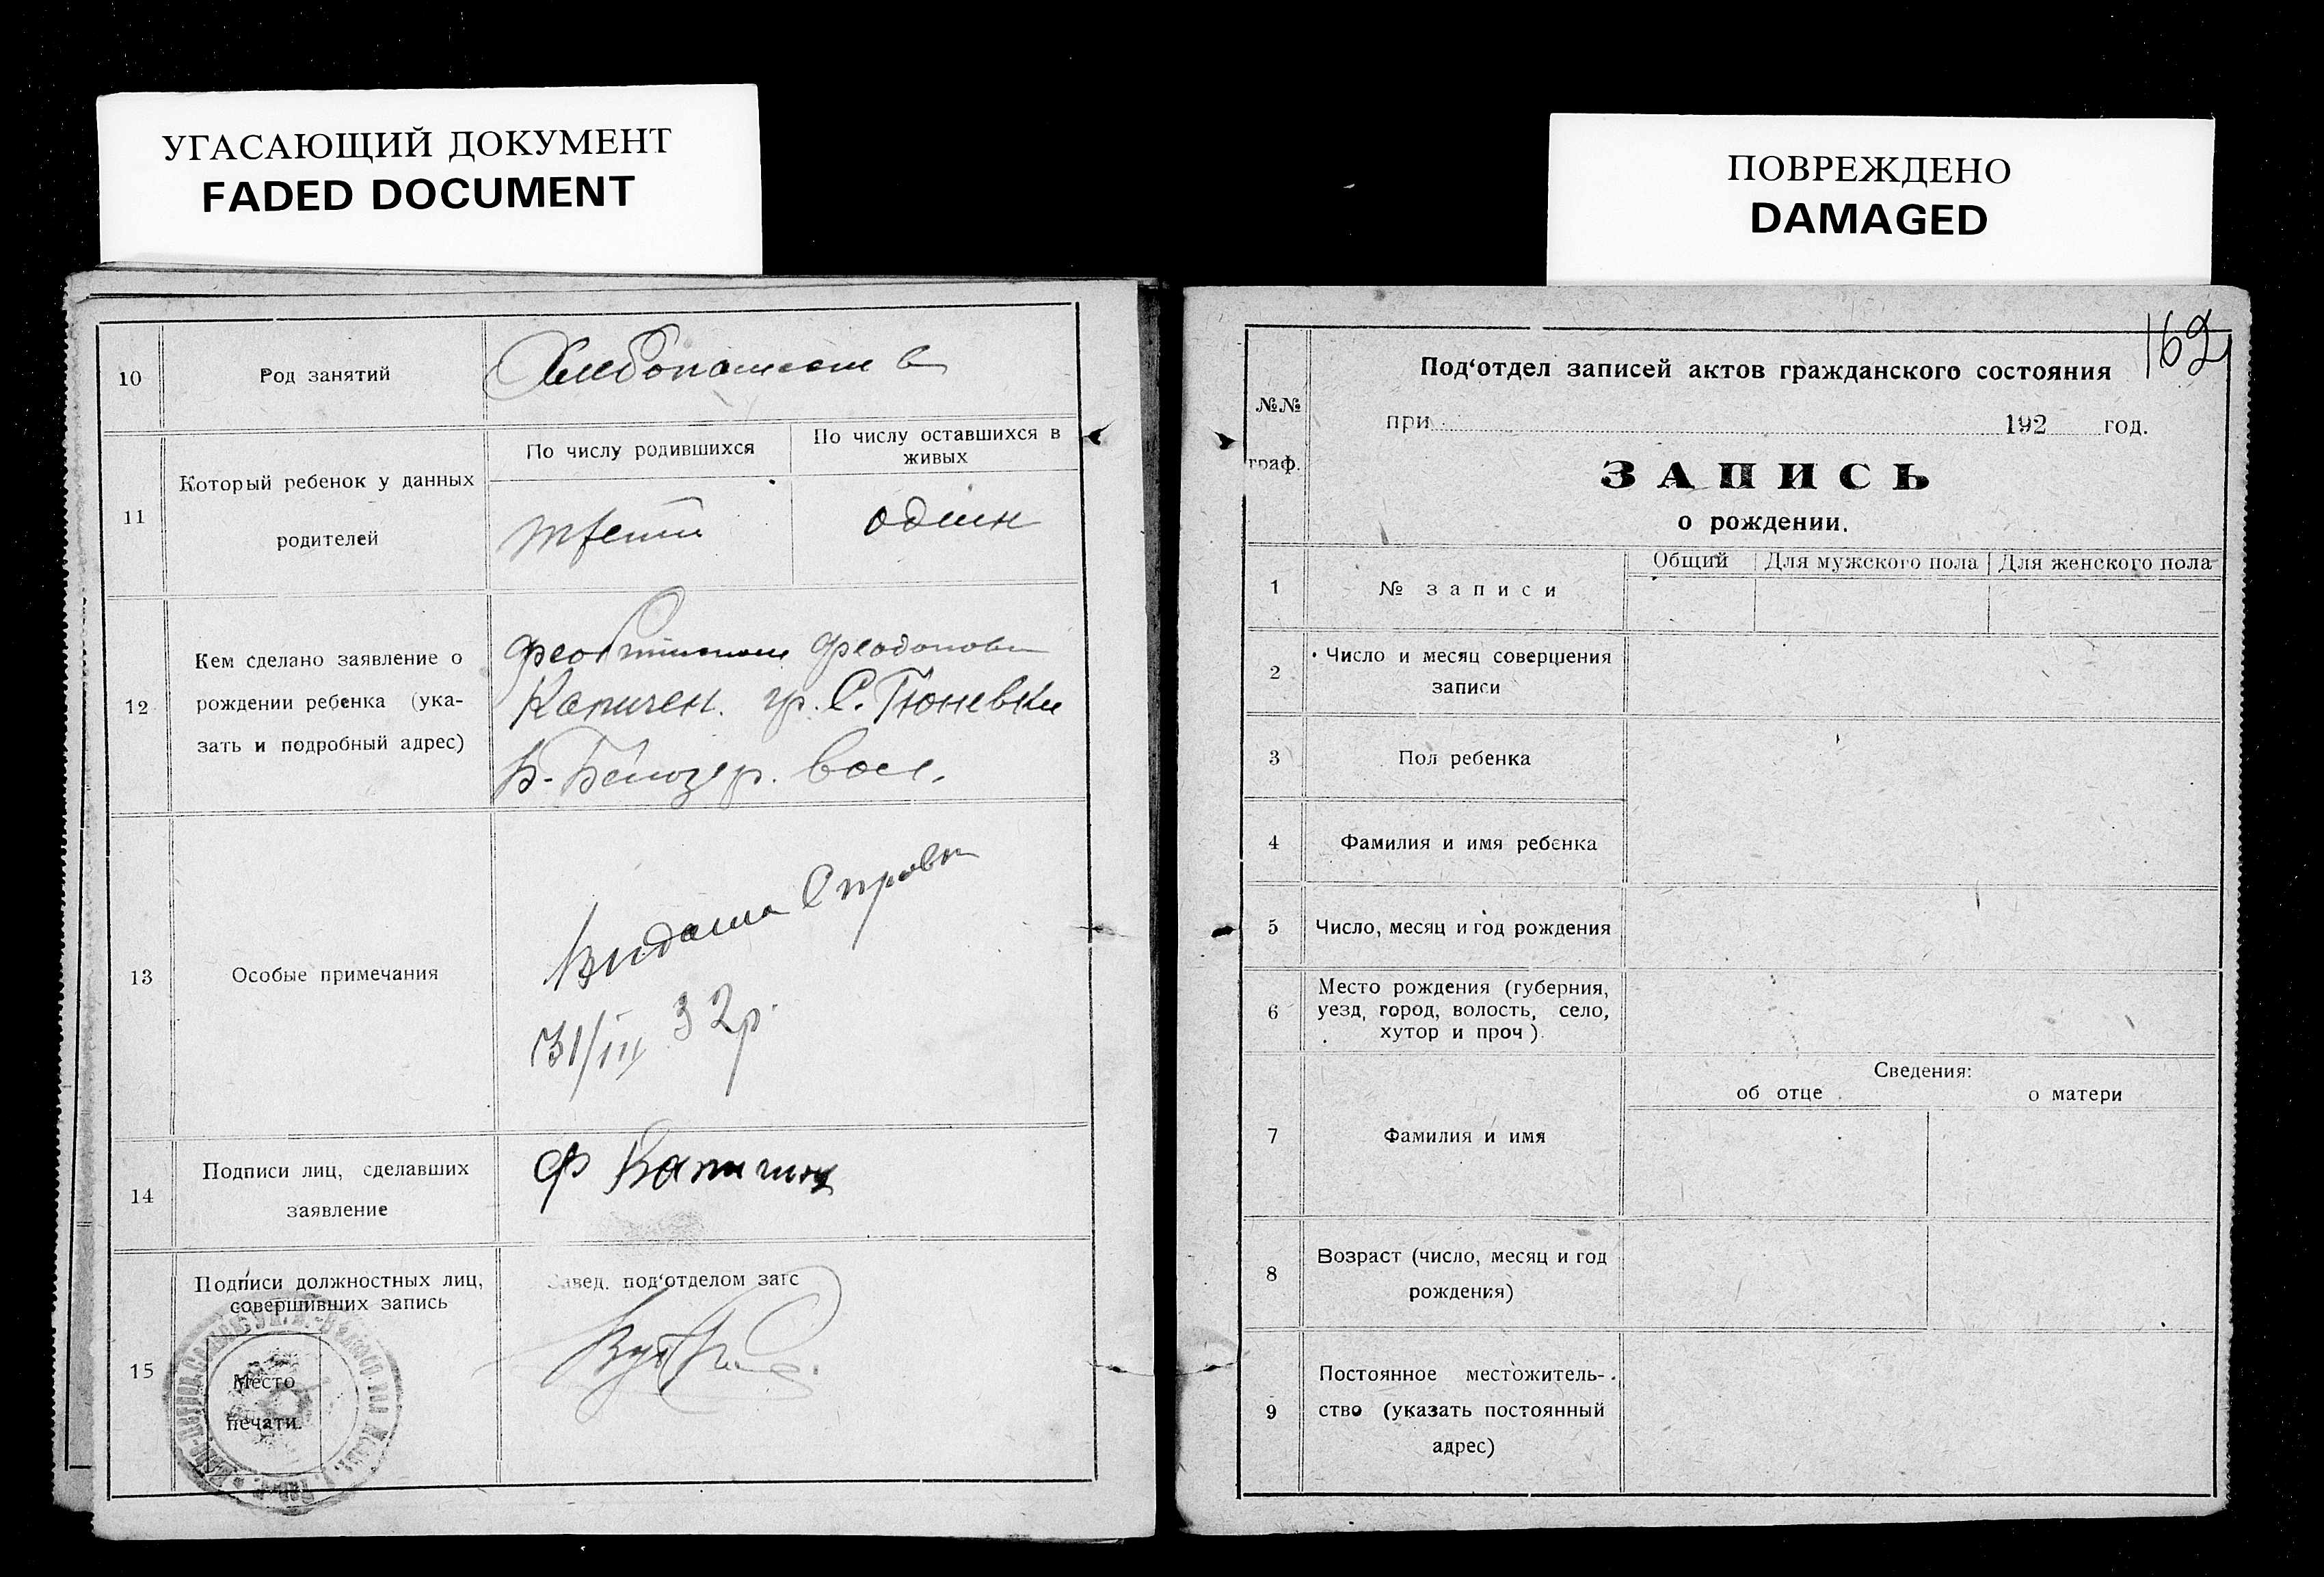 УГАСАЮЩИЙ ДОКУМЕНТ
FADED DOCUMENT
ПОВРЕЖДЕНО
DAMAGED
10
Род занятий
11
Который ребенок у данных
родителей
По числу родившихся
По числу оставшихся в
живых
один
12
Кем сделано заявление о
рождении ребенка (ука-
зать и подробный адрес)
гр. С.
13
Особые примечания
31/III 32р.
14
Подписи лиц, сделавших
заявление
Ф
15
Подписи должностных лиц,
совершивших запись
Место
печати.
Завед. под‘отделом загс
162
№№
граф.
Под‘отдел записей актов гражданского состояния
при 192 год.
ЗАПИСЬ
о рождении.
1
№ записи
Общий
Для мужского пола
Для женского пола
2
Число и месяц совершения
записи
3
Пол ребенка
4
Фамилия и имя ребенка
5
Число, месяц и год рождения
6
Место рождения (губерния,
уезд, город, волость, село,
хутор и проч).
Сведения:
об отце
о матери
7
Фамилия и имя
8
Возраст (число, месяц и год
рождения)
9
Постоянное местожитель-
ство (указать постоянный
адрес)